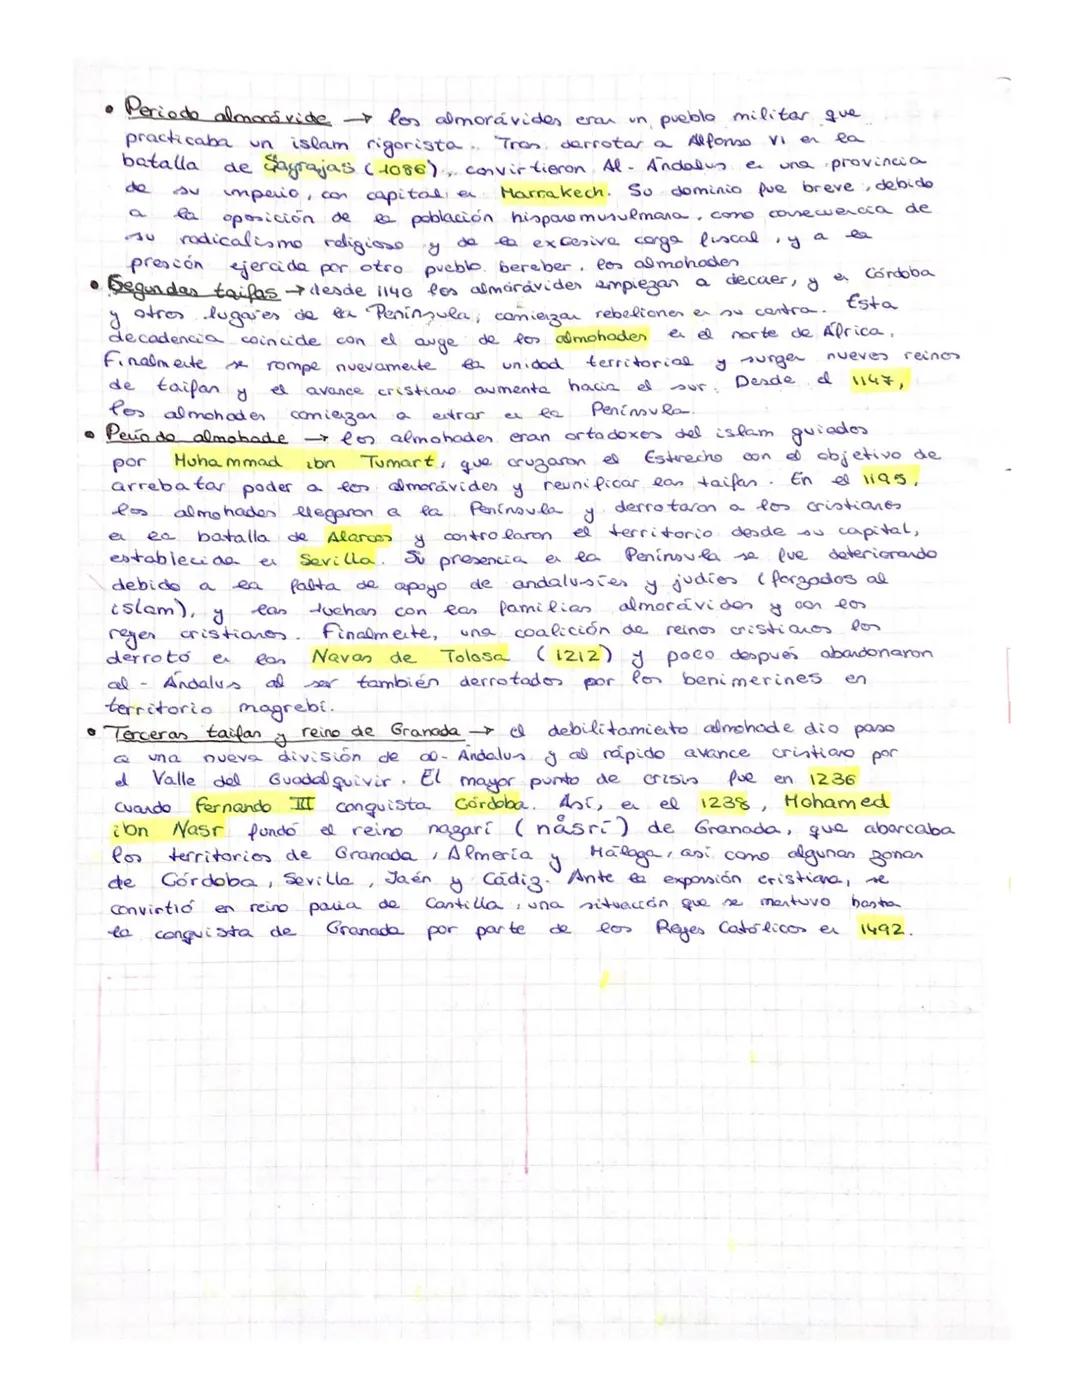 • Periodo almorávide → los almorávides eran un pueblo militar que
practicaba un islam rigorista. Tras derrotar a Alfonso VI en la
batalla de Sagrajas (1086), convirtieron Al-Ándalus en una provincia
de su imperio, con capital en Marrakech. Su dominio fue breve, debido
a la oposición de la población hispanomusulmana, como consecuencia de
su radicalismo religioso y de la excesiva carga fiscal, y a la
presión ejercida por otro pueblo bereber, los almohades
• Segundas taifas → desde 1140 los almorávides empiezan a decaer, y en Córdoba
y otros lugares de la Península, comienzan rebeliones en su contra. Esta
decadencia coincide con el auge de los almohades en el norte de África.
Finalmente se rompe nuevamente la unidad territorial y surgen nuevos reinos
de taifas y el avance cristiano aumenta hacia el sur. Desde el 1147,
los almohades comienzan a entrar en la Península.
• Periodo almohade → los almohades eran ortodoxos del islam guiados
por Muhammad ibn Tumart, que cruzaron el Estrecho con el objetivo de
arrebatar poder a los almorávides y reunificar las taifas. En el 1195,
los almohades llegaron a la Península y derrotaron a los cristianos
en la batalla de Alarcos y controlaron el territorio desde su capital,
establecida en Sevilla. Su presencia en la Península se fue deteriorando
debido a la falta de apoyo de andalusíes y judíos (forzados al
islam), y las luchas con las familias almorávides y con los
reyes cristianos. Finalmente, una coalición de reinos cristianos los
derrotó en las Navas de Tolosa (1212) y poco después abandonaron
al-Ándalus al ser también derrotados por los benimerines en
territorio magrebí.
• Terceras taifas y reino de Granada → el debilitamiento almohade dio paso
a una nueva división de al-Ándalus y al rápido avance cristiano por
el Valle del Guadalquivir. El mayor punto de crisis fue en 1236
cuando Fernando III conquista Córdoba. Así, en el 1238, Mohamed
ibn Nasr fundó el reino nazarí (násrí) de Granada, que abarcaba
los territorios de Granada, Almería y Málaga, así como algunas zonas
de Córdoba, Sevilla, Jaén y Cádiz. Ante la expansión cristiana, se
convirtió en reino paria de Castilla, una situación que se mantuvo hasta
la conquista de Granada por parte de los Reyes Católicos en 1492.